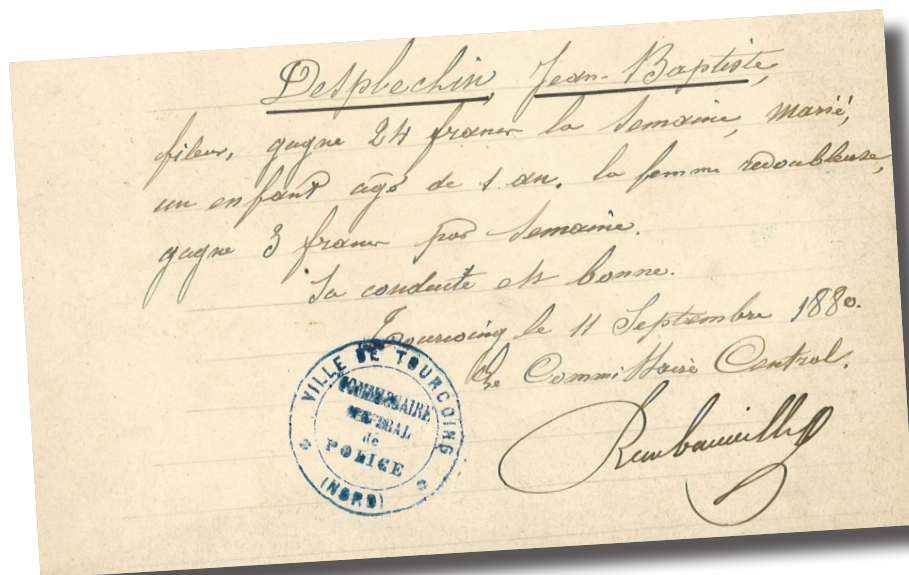 Desplechin, Jean-Baptiste,
fileur, gagne 24 francs la semaine, marié,
un enfant agé de 1 an. la femme redoubleuse,
gagne 3 francs par semaine.
Sa conduite est bonne.
Tourcoing le 11 Septembre 1880.
Le Commissaire Central.
VILLE DE TOURCOING
COMMISSAIRE
CENTRAL
de
POLICE
(NORD)